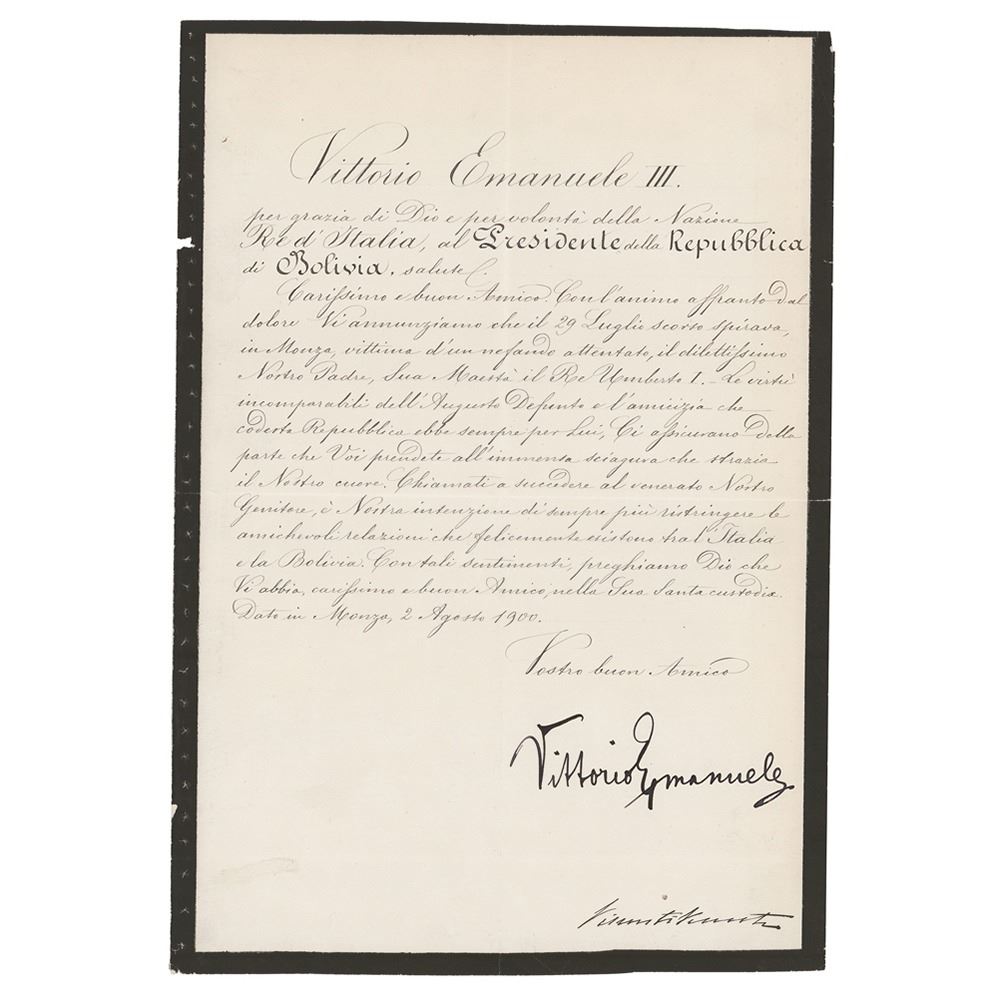 Vittorio Emanuele III.
per grazia di Dio e per volontà della Nazione
Re d'Italia, al Presidente della Repubblica
di Bolivia, salute.
Carissimo e buon Amico. Con l'animo affranto dal
dolore Vi annunziamo che il 29 Luglio scorso spirava,
in Monza, vittima d'un nefando attentato, il dilettissimo
Nostro Padre, Sua Maestà il Re Umberto I. - Le virtù
incomparabili dell'Augusto Defunto e l'amicizia che
codesta Repubblica ebbe sempre per Lui, Ci assicurano della
parte che Voi prendete all'immensa sciagura che strazia
il Nostro cuore. Chiamati a succedere al venerato Nostro
Genitore, è Nostra intenzione di sempre più ristringere le
amichevoli relazioni che felicemente esistono tra l'Italia
e la Bolivia. Con tali sentimenti, preghiamo Dio che
Vi abbia, carissimo e buon Amico, nella Sua Santa custodia.
Dato in Monza, 2 Agosto 1900.
Vostro buon Amico
Vittorio Emanuele
Visconti Venosta